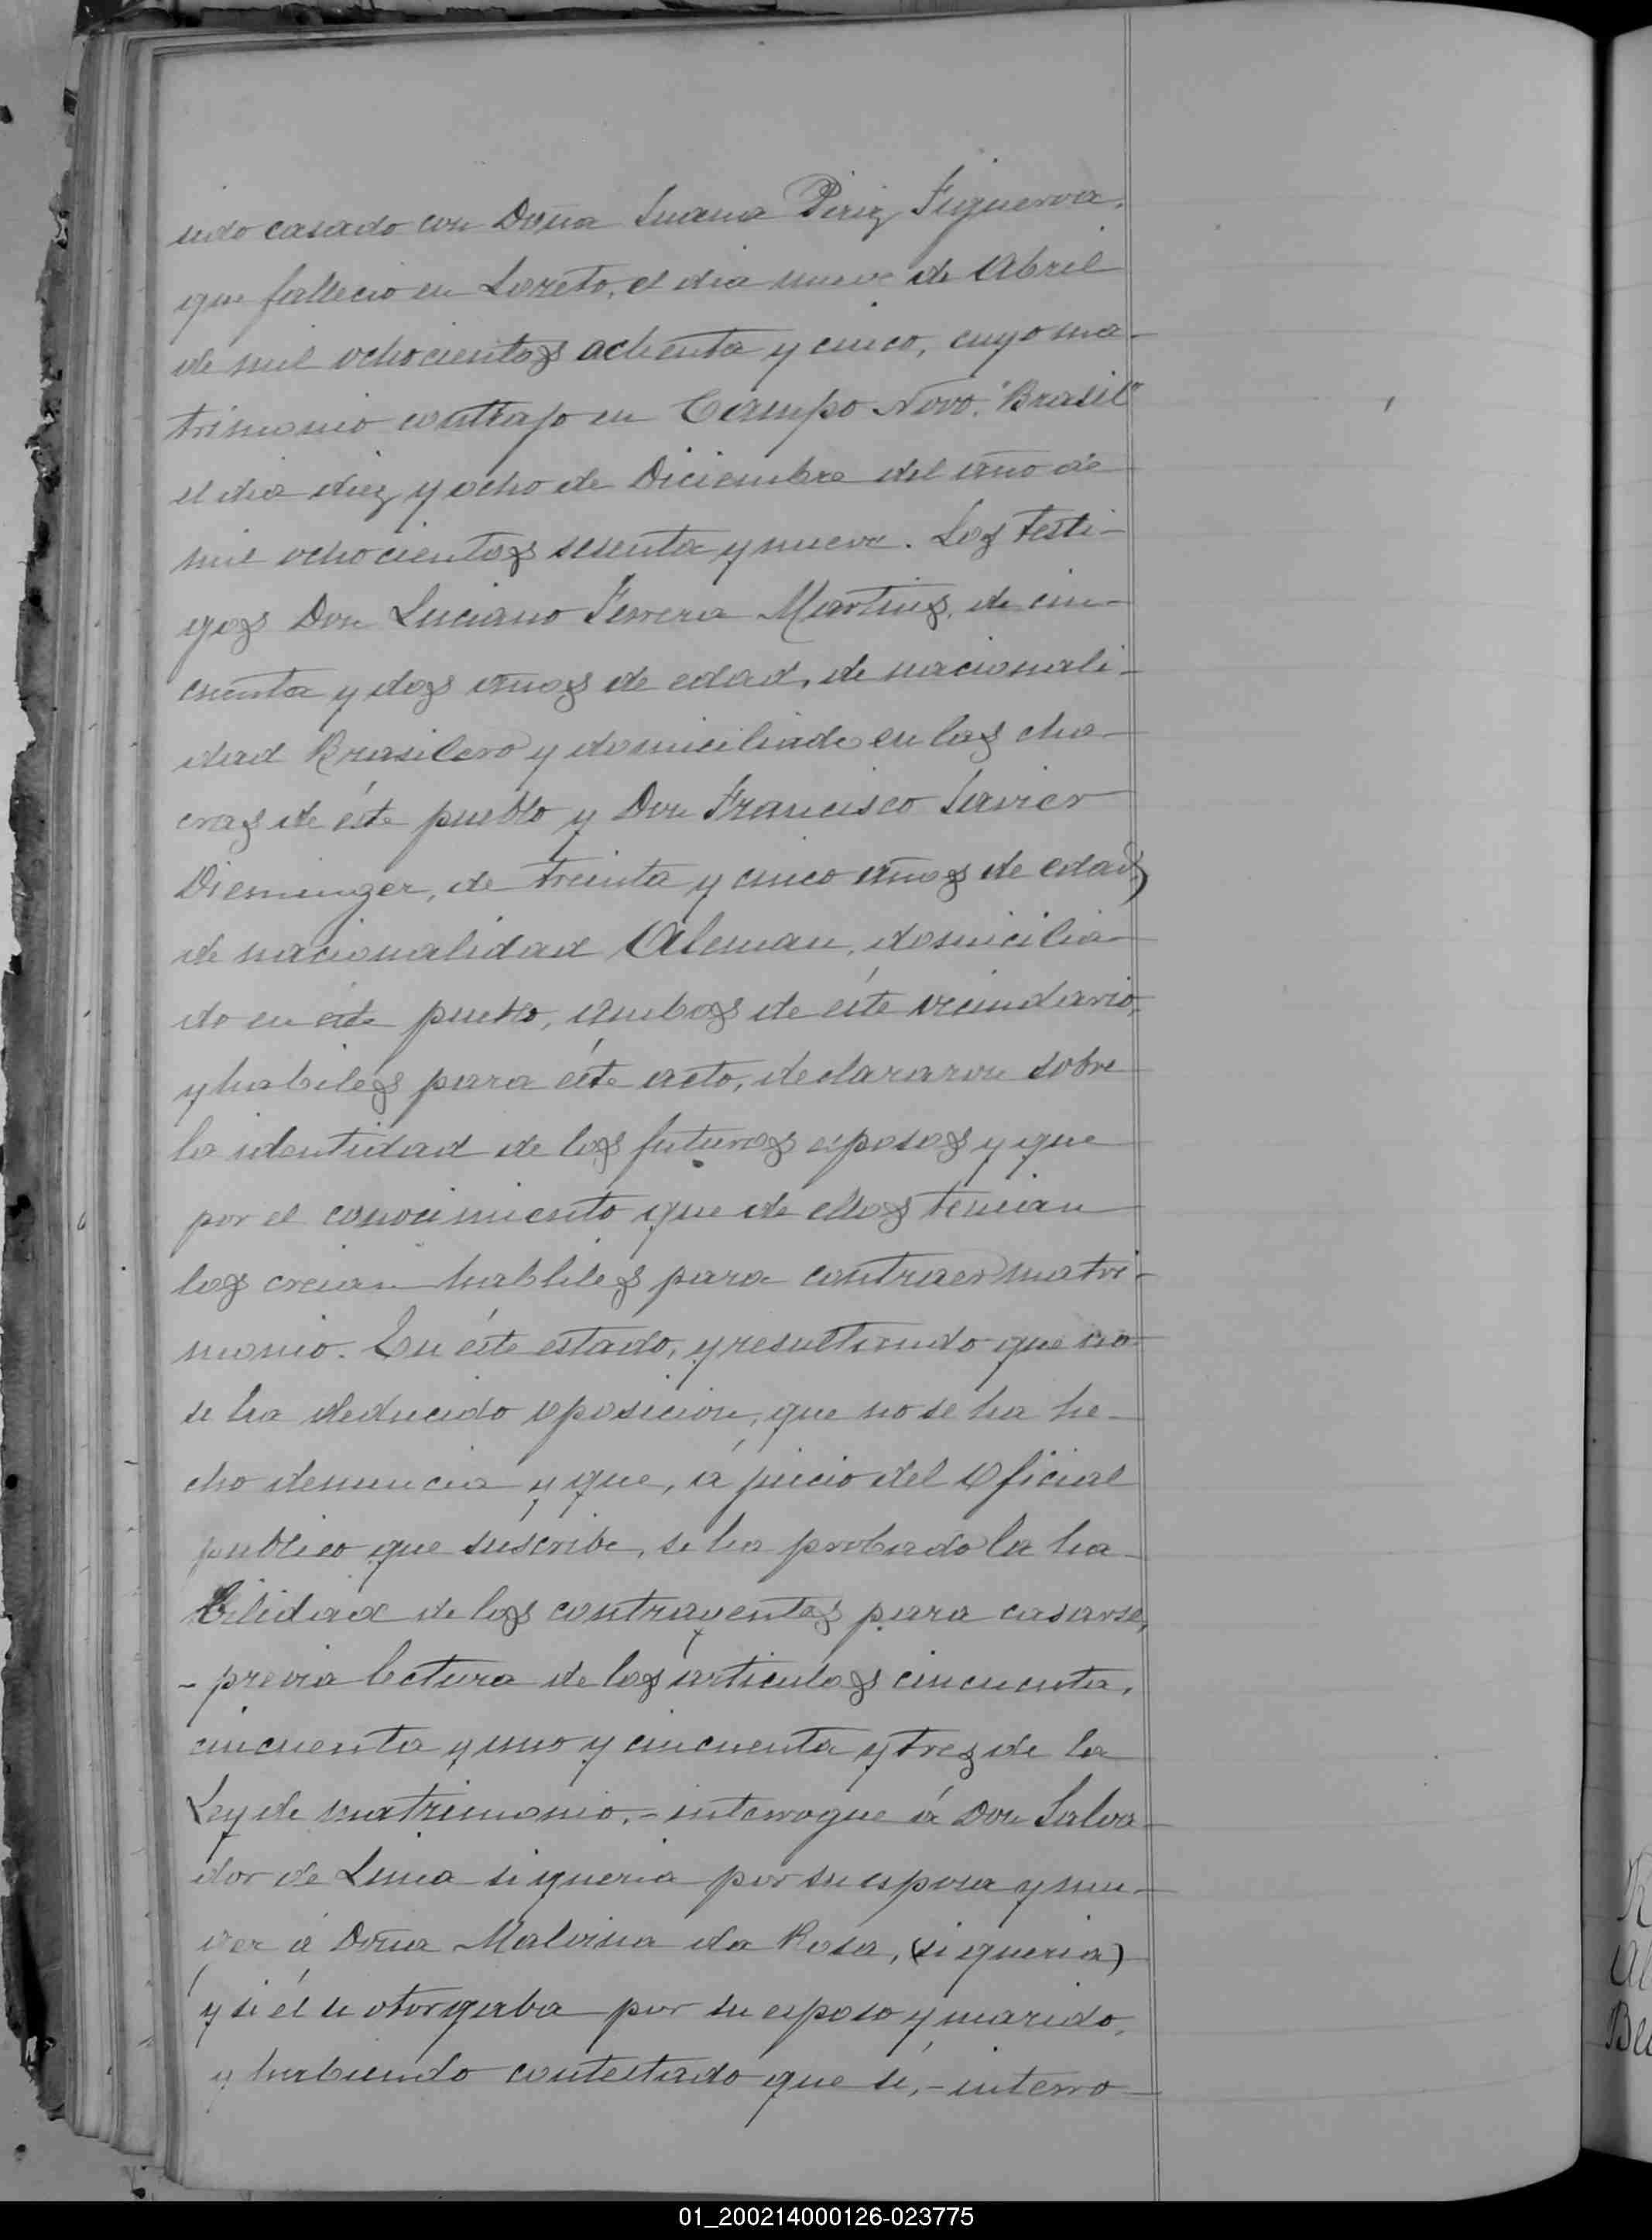 sido casado con Doña Juana Piriz Figueroa,
que fallecio en Loreto, el dia nueve de Abril
de mil ochocientos ochenta y cinco, cuyo ma-
trimonio contrajo en Campo Novo. "Brasil"
el dia diez y ocho de Diciembre del año de
mil ochocientos sesenta y nueve. Los testi-
gos Don Luciano Ferrera Martins, de cin-
cuenta y dos años de edad, de nacionali-
dad Brasilero y domiciliado en las cha-
cras de éste pueblo y Don Francisco Javier
Dieminger, de treinta y cinco años de edad,
de nacionalidad Aleman, domicilia-
do en éste pueblo, ambos de éste vecindario,
y habiles para éste acto, declararon sobre
la identidad de los futuros esposos y que
por el conocimiento que de ellos tenian
los creian habliles para contraer matri-
monio. En éste estado, y resultando que no
se ha deducido oposicion, que no se ha he-
cho denuncia y que, á juicio del Oficial
publico que suscribe, se ha probado la ha-
bilidad de los contrayentes para casarse,
- previa lectura de los articulos cincuenta,
cincuenta y uno y cincuenta y tres de la
Ley de matrimonio. - interrogue á Don Salva-
dor de Lima si queria por su esposa y mu-
jer á Doña Malvina da Rosa, (si queria)
y si él se otorgaba por su esposo y marido,
y habiendo contestado que sí, - interro-
01_200214000126-023775